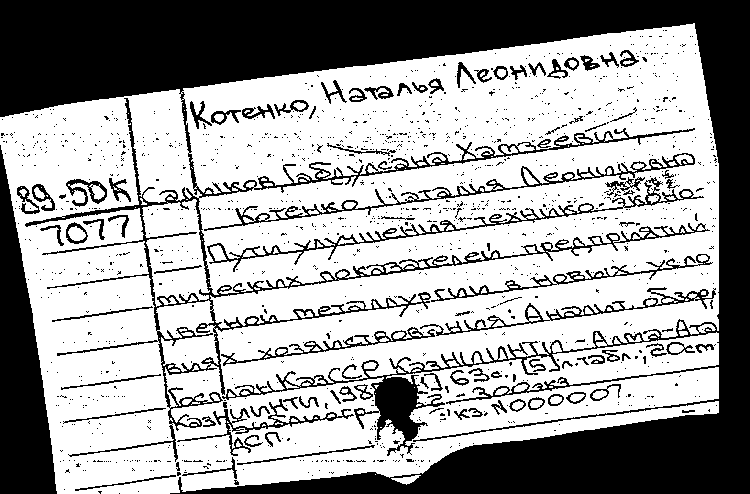 Котенко, Наталья Леонидовна.
89-50К
7077
Садыков, Габдулсана Хамзеевич,
Котенко, Наталья Леонидовна
Пути улучшения технико-эконо-
мических показателей предприятий
цветной металлургии в новых усло
виях хозяйствования: Аналит. обзор,
Госплан КазССР КазНИИНТИ - Алма-Ата
КазНИИНТИ, 63с., [5] л. табл.; 20см
Библиогр - 300экз
кз. N000007.
ДСП.